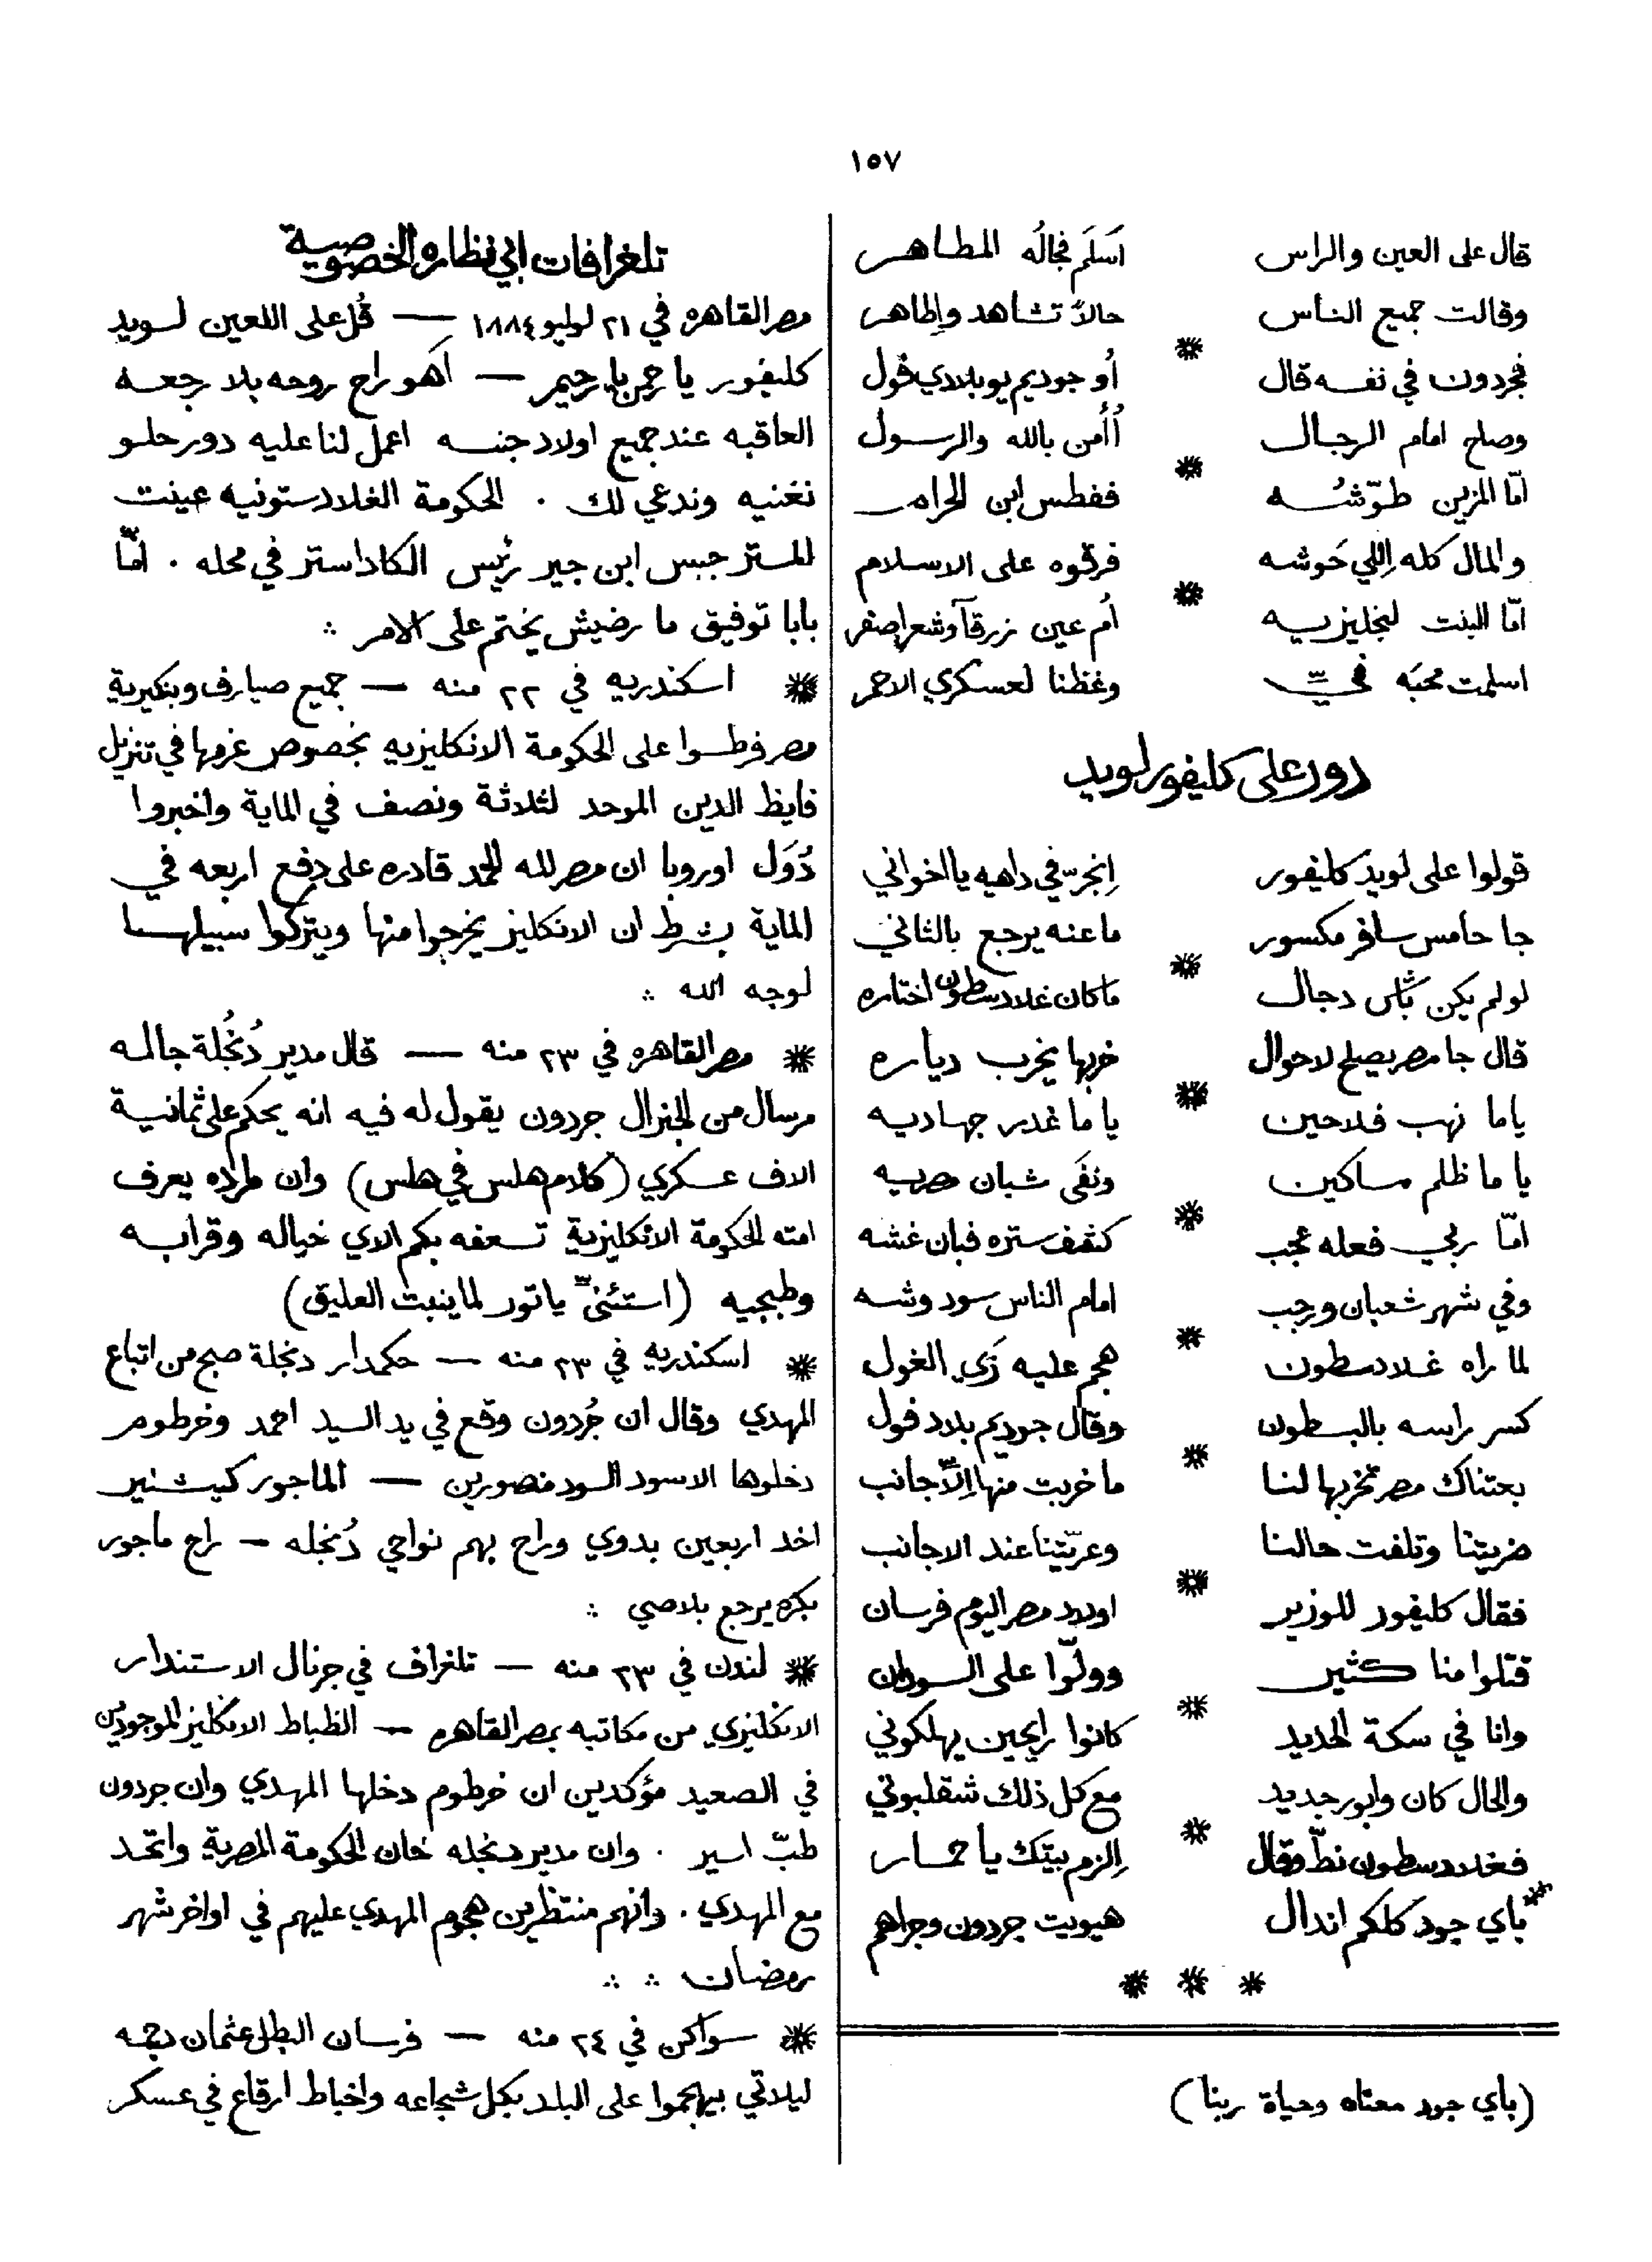 ١٥٧
قال على العين والراس    اَسلَم فجالُه المطاهر
وقالت جميع الناس    حالاً تشاهد واطاهر
*
فجردون في نفسه قال    أو جوديم يو بلادي فول
وصاح امام الرجال    أأمن بالله والرسول
*
امّا المزين طوّشُه    ففطس ابن الحرام
والمال كله اِللي حَوشه    فرقوه على الاسلام
*
امّا البنت لنجليزيه    اُم عين زرقآ وشعر اصفر
اسلمت محبَه فيّ    وغظنا لعسكري الاحمر
دور على كليفور لويد
قولوا على لويد كليفور    اِنجرّ في داهيه يا اخواني
جا حامس سافر مكسور    ما عنه يرجع بالثاني
*
لو لم يكن بأس دجال    ما كان غلادسطون اختاره
قال جا مصر يصلح لاحوال    خربها يخرب دياره
*
ياما نهب فلاحين    يا ما غدر جهاديه
يا ما ظلم مساكين    ونفَى شبان مصريه
*
امّا ربي فعله عجب    كشف ستره فبان غشه
وفي شهر شعبان ورجب    امام الناس سود وشه
*
لما راه غلادسطون    هجم عليه زَي الغول
كسر راسه بالبسطون    وقال جوديم بلاد فول
*
بعتناك مصر تخربها لنا    ما خربت منها اِلاّ جانب
ضريتنا وتلفت حالنا    وعريّتنا عند الاجانب
*
فقال كليفور للوزير    اولاد مصر اليوم فرسان
قتلوا منا كثير    وولّوا على السودان
*
وانا في سكة الحديد    كانوا رايحين يهلكوني
والحال كان وابور جديد    مع كل ذلك شقلبوني
*
فغلادسطون نطّ وقال    اِلزم بيتك يا حمار
باي جود كلكم اندال    هيويت جردون وجراهم
* * *
(باي جود معناه وحياة ربنا)
تلغرافات ابي نظاره الخصوصية
مصر القاهره في ٢١ لوليو ١٨٨٤ — قُل على اللعين لويد
كليفور يا رحمن يا رحيم — اَهو راح روحه بلا رجعه
العاقبه عند جميع اولاد جنسه اعمل لنا عليه دور حلو
نغنيه وندعي لك . الحكومة الغلادستونيه عينت
المستر جبسن ابن جير رئيس الكاداستر في محله . امّا
بابا توفيق ما رضيش يختم على الامر ∴
* اسكندريه في ٢٢ منه — جميع صيارف وبنكيرية
مصر فرطسوا على الحكومة الانكليزيه بخصوص غرمها في تنزيل
فايظ الدين الموحد لثلاثة ونصف في الماية واخبروا
دُوَل اوروبا ان مصر لله الحمد قادره على دفع اربعه في
الماية بشرط ان الانكليز يخرجوا منها ويتركوا سبيلها
لوجه الله ∴
* مصر القاهره في ٢٣ منه — قال مدير دُنجُلة جاله
مرسال من الجنرال جردون يقول له فيه انه يحكم على ثمانية
الاف عسكري (كلام هلس في هلس) وان مراده يعرف
امته الحكومة الانكليزية تسعفه بكم الاي خياله وقرابه
وطبجيه (استنّى يا تور لما ينبت العليق)
* اسكندريه في ٢٣ منه — حكمدار دنجلة صبح من اتباع
المهدي وقال ان جُردون وقع في يد السيد احمد وخرطوم
دخلوها الاسود السود منصورين — الماجور كيتشنير
اخد اربعين بدوي وراح بهم نواحي دُنجله — راح ماجور
بكره يرجع بلاصي ∴
* لندن في ٢٣ منه — تلغراف في جرنال الاستندار
الانكليزي من مكاتبه بمصر القاهره — الظباط الانكليز الموجودين
في الصعيد مؤكدين ان خرطوم دخلها المهدي وان جردون
طبّ اسير . وان مدير دنجله خان الحكومة المصرية واتحد
مع المهدي . وانهم منتظرين هجوم المهدي عليهم في اواخر شهر
رمضان ∴ ∴
* سواكن في ٢٤ منه — فرسان البطل عثمان دجمه
ليلاتي بيهجموا على البلد بكل شجاعه واخباط ارقاع في عسكر